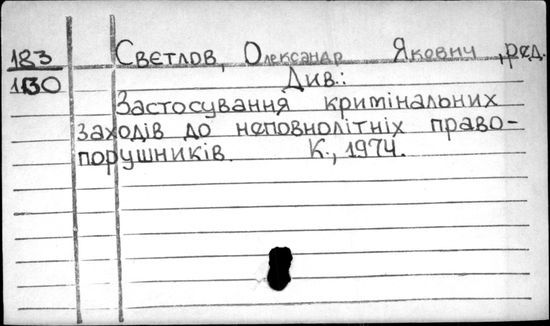 183 Свєтлов, Олександр Якович, ред.
1130 Див.:
Застосування кримінальних
заходів до неповнолітніх право-
порушників. К., 1974.